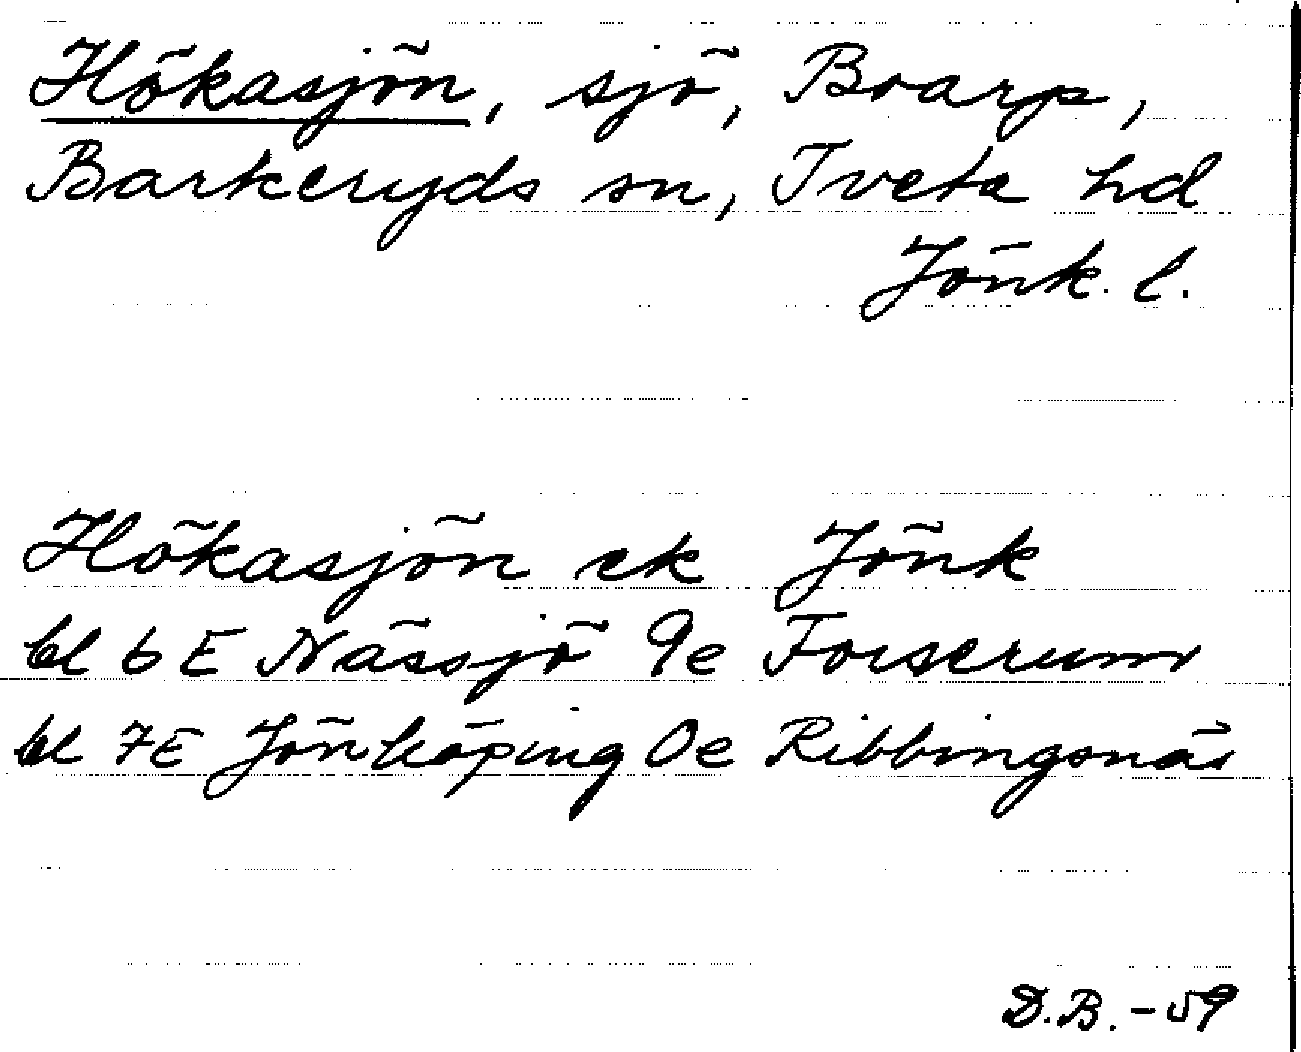 Hökasjön, sjö, Boarp,
Barkeryds sn, Tveta hd
Jönk. l.
Hökasjön ek Jönk
bl 6 E Nässjö 9e Forserum
bl 7E Jönköping 0e Ribbingsnäs
D.B. - 59